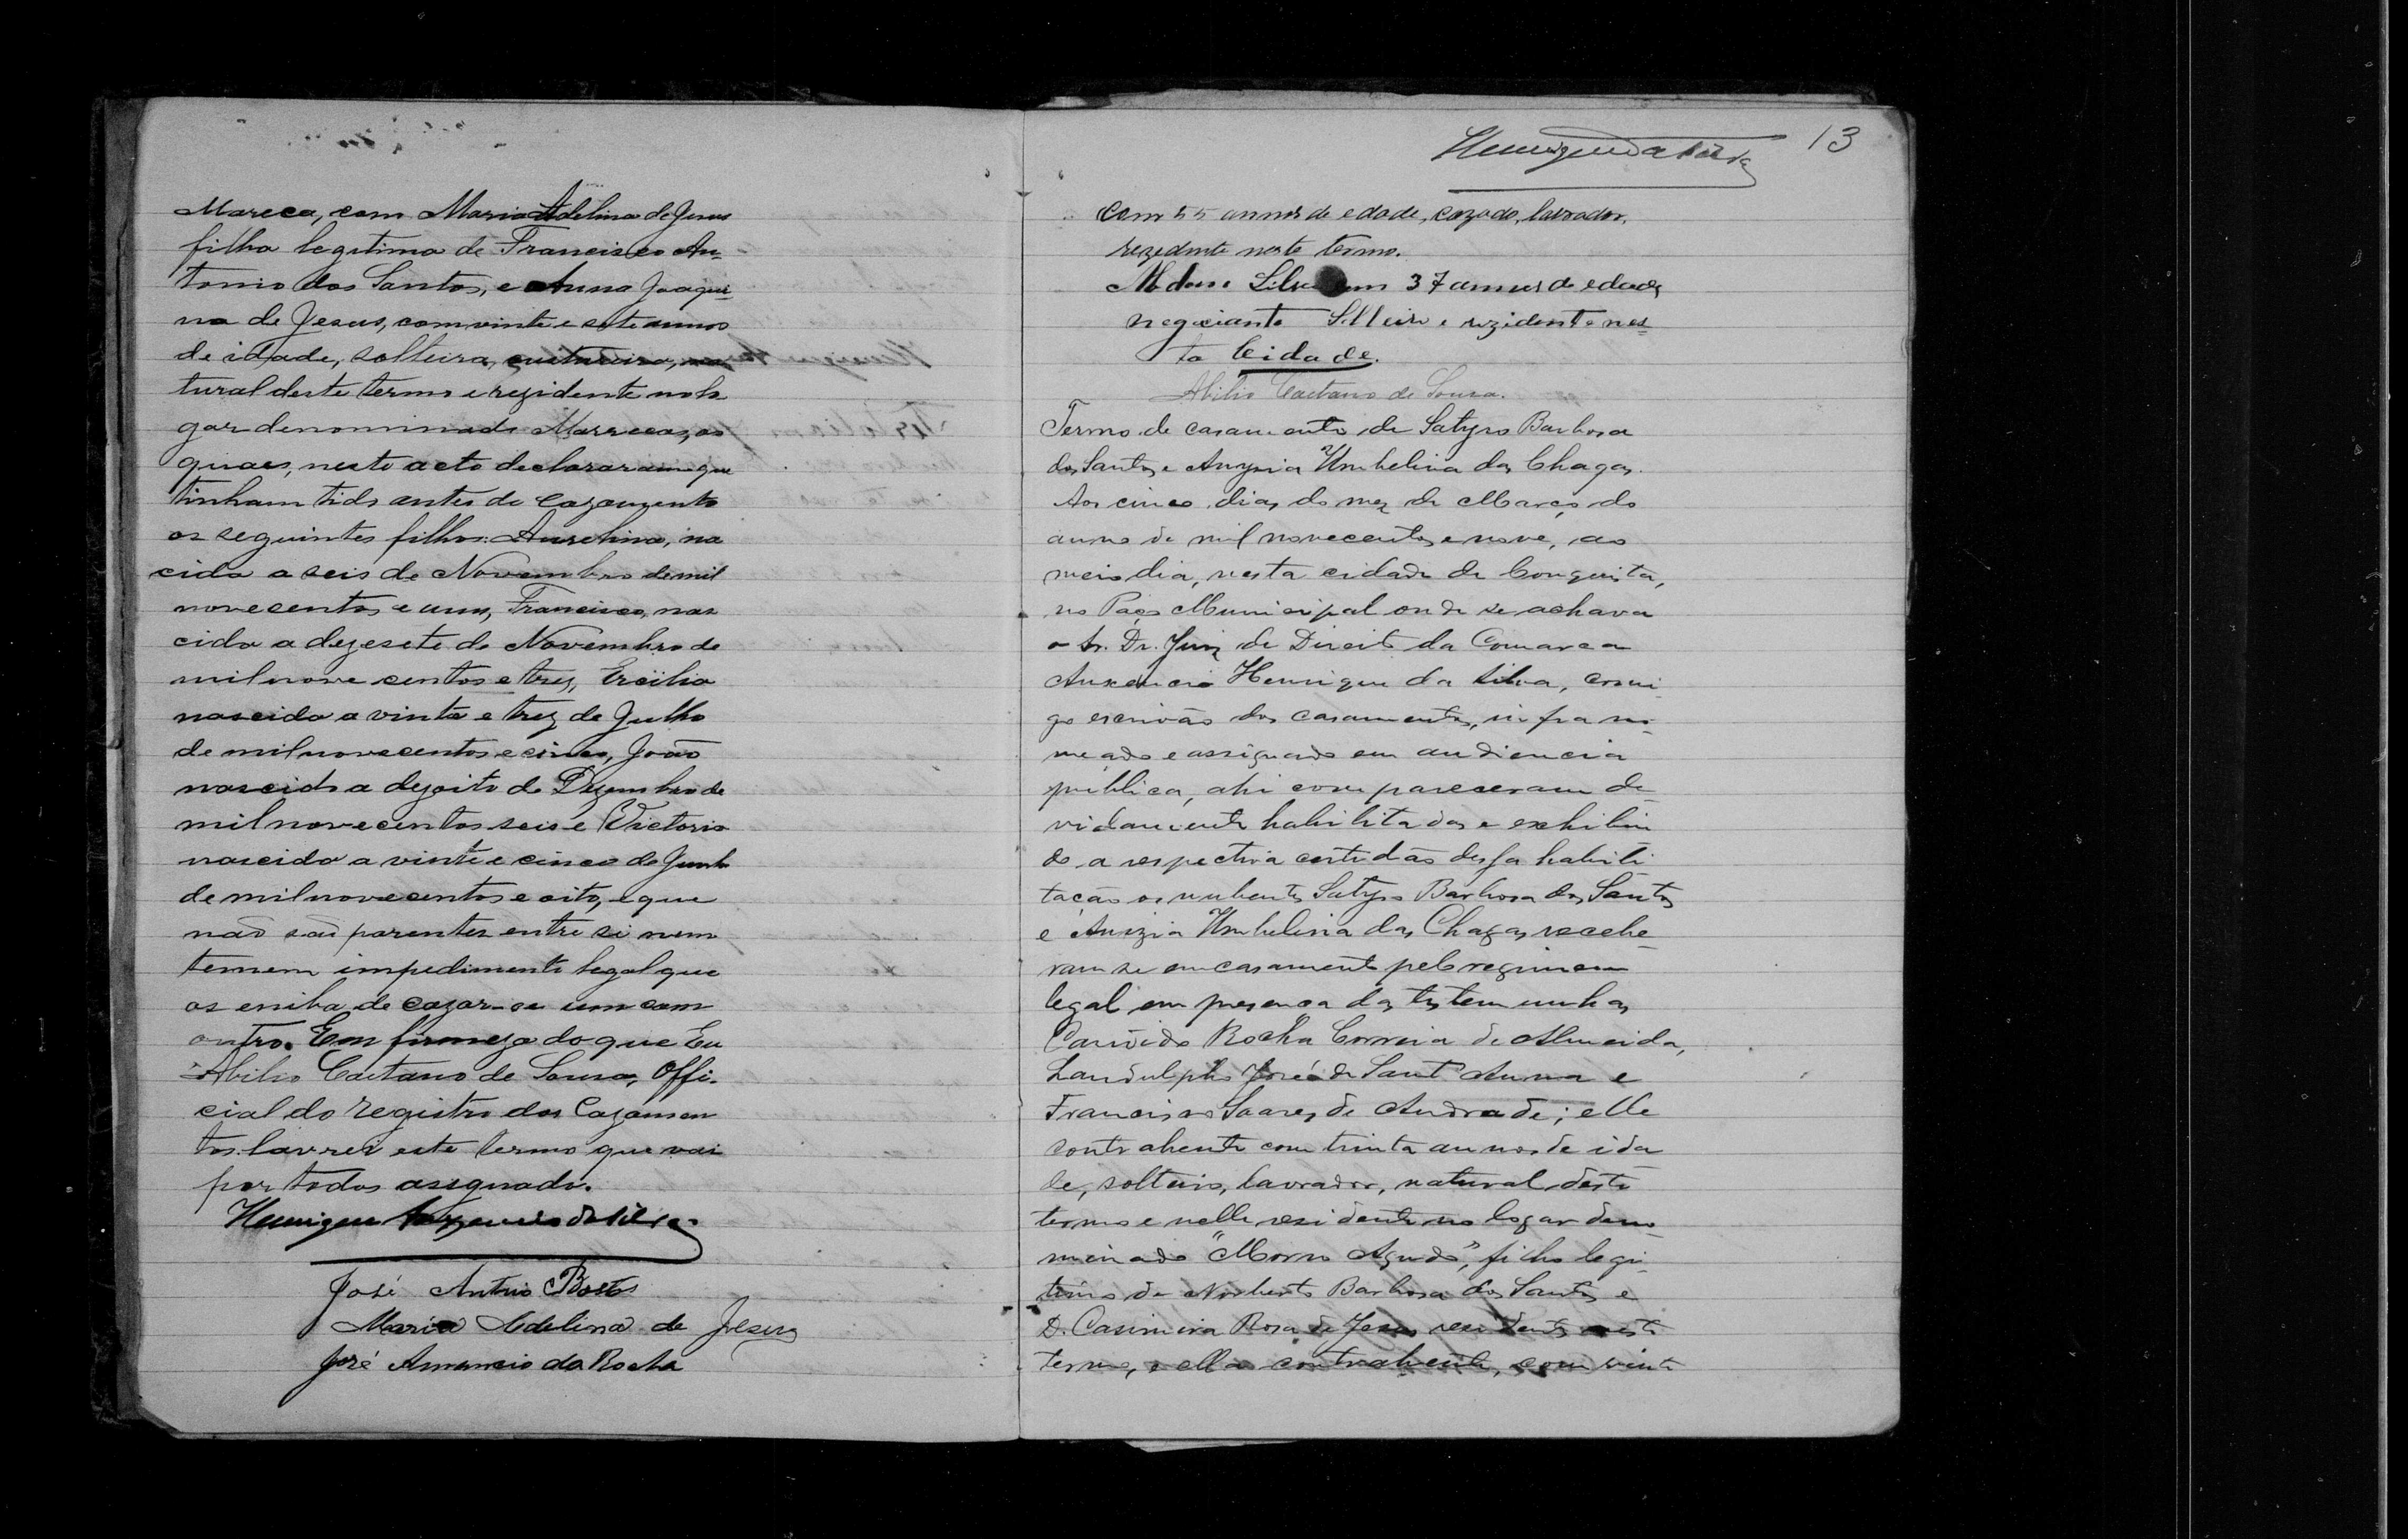 Mareca, com Maria Adelina de Jesus
filha legitima de Francisco An-
tonio dos Santos, e Anna Joaqui-
na de Jesus, com vinte e sete annos
de idade, solteira, custureira, na
tural deste termo e rezidente no lo
gar denominado Marrecas, os
quaes, neste acto declararam que
tinham tido antes do cazamento
os seguintes filhos: Aurelino, na
cido a seis de Novembro de mil
novecentos e um, Francisco, nas
cido a dezesete de Novembro de
mil nove centos e trez, Ercilia
nascida a vinte e trez de Julho
de mil novecentos e cinco, João
nascido a dezoito de Dezembro de
mil novecentos seis e Victoria
nascida a vinte e cinco de Junho
de mil novecentos e oito, e que
não são parentes entre si nem
temem impedimento legal que
os eniba de cazar-se um com
outro. Em firmeza do que Eu
Abilio Caetano de Souza, Offi-
cial do registro dos Cazamen
tos lavrei este termo que vai
por todos asignado.
Henrique da Silva
José Antonio Bastos
Maria Adelina de Jesus
José Amancio da Rocha
13
Henrique da Silva
com 55 annos de edade, cazado, lavrador,
rezedente neste termo.
Silva com 37 annos de edade
negociante Solteiro e rezidente nes-
ta Cidade.
Abilio Caetano de Souza.
Termo de casamento de Satyro Barbosa
dos Santos e Anysia Umbelina das Chagas.
Aos cinco dias do mez de Março do
anno de mil novecentos e nove, ao
meio dia, nesta cidade de Conquista,
no Paço Municipal onde se achava
o Sr. Dr. Juiz de Direito da Comarca
Auxencio Henrique da Silva, comi-
go escrivão dos casamentos, infra no-
meado e assignado em audiencia
publica, ahi compareceram de-
vidamente habilitados e exhibin
do a respectiva certidão dessa habili-
tação os nubentes Satyro Barbosa dos Santos
e Anizia Umbelina das Chagas recebe-
ram se em casamento pelo regimem
legal em presença das testemunhas
Rocha Correia de Almeida,
Landulpho José de Sant'Anna e
Francisco Soares de Andrade; elle
contrahente com trinta annos de ida
de, solteiro, lavrador, natural deste
termo e nelle residente no logar deno-
minado "Morro Agudo", filho legi-
timo de Norberto Barbosa dos Santos e
D. Casimira Rosa de Jesus residentes neste
termo, e ella contrahente, com vinte